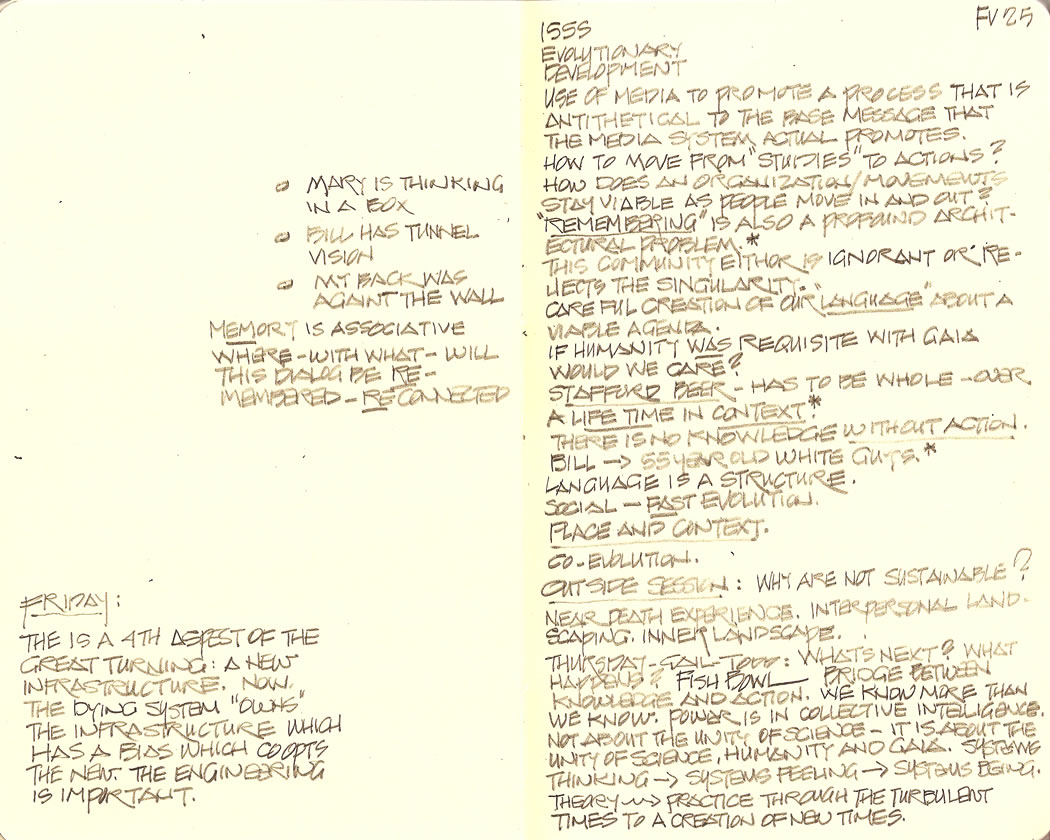 MARY IS THINKING
IN A BOX
BILL HAS TUNNEL
VISION
MY BACK WAS
AGAINT THE WALL
MEMORY IS ASSOCIATIVE
WHERE-WITH WHAT- WILL
THIS DIALOG BE RE-
MEMBERED - RECONNECTED
FRIDAY:
THE IS A 4TH ASPEST OF THE
GREAT TURNING: A NEW
INFRASTRUCTURE. NOW.
THE DYING SYSTEM "OWNS"
THE INFRASTRUCTURE WHICH
HAS A BIAS WHICH COOPTS
THE NEW. THE ENGINEERING
IS IMPORTANT.
FV 25
ISSS
EVOLUTIONARY
DEVELOPMENT
USE OF MEDIA TO PROMOTE A PROCESS THAT IS
ANTITHETICAL TO THE BASE MESSAGE THAT
THE MEDIA SYSTEM ACTUAL PROMOTES.
HOW TO MOVE FROM "STUDIES" TO ACTIONS?
HOW DOES AN ORGANIZATION/MOVEMENTS
STAY VIABLE AS PEOPLE MOVE IN AND OUT?
"REMEMBERING" IS ALSO A PROFOUND ARCHIT-
ECTURAL PROBLEM.*
THIS COMMUNITY EITHOR IS IGNORANT OR RE-
JECTS THE SINGULARITY.
CAREFUL CREATION OF OUR "LANGUAGE" ABOUT A
VIABLE AGENDA.
IF HUMANITY WAS REQUISITE WITH GAIA
WOULD WE CARE?
STAFFORD BEER - HAS TO BE WHOLE - OVER
A LIFE TIME IN CONTEXT.*
THERE IS NO KNOWLEDGE WITHOUT ACTION.
BILL → 55 YEAR OLD WHITE GUYS.*
LANGUAGE IS A STRUCTURE.
SOCIAL - FAST EVOLUTION.
PLACE AND CONTEXT.
CO-EVOLUTION.
OUTSIDE SESSION: WHY ARE NOT SUSTAINABLE?
NEAR DEATH EXPERIENCE. INTERPERSONAL LAND-
SCAPING. INNER LANDSCAPE.
THURSDAY-GAIL-TODD: WHATS NEXT? WHAT
HAPPENS? FISH BOWL BRIDGE BETWEEN
KNOWLEDGE AND ACTION. WE KNOW MORE THAN
WE KNOW. POWER IS IN COLLECTIVE INTELLIGENCE.
NOT ABOUT THE UNITY OF SCIENCE - IT IS ABOUT THE
UNITY OF SCIENCE, HUMANITY AND GAIA. SYSTEMS
THINKING → SYSTEMS FEELING → SYSTEMS BEING.
THEORY → PRACTICE THROUGH THE TURBULENT
TIMES TO A CREATION OF NEW TIMES.